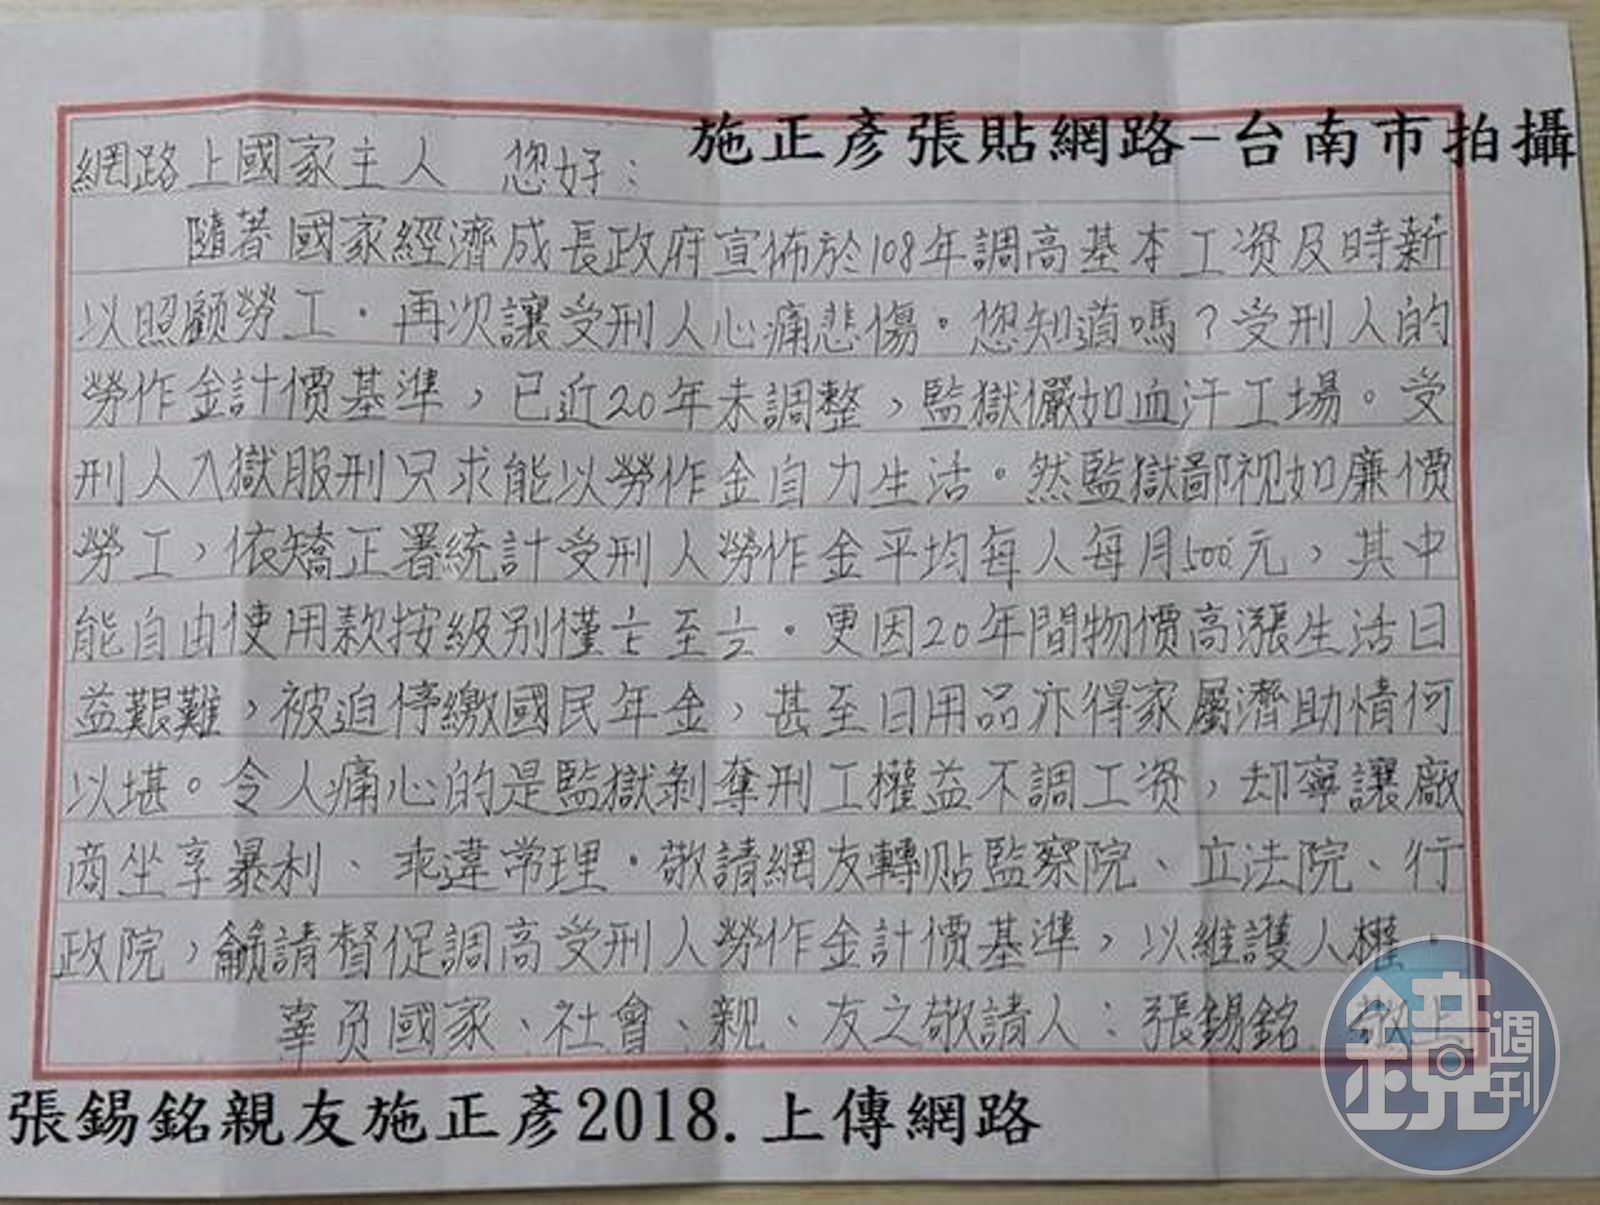 施正彥張貼網路-台南市拍攝
網路上國家主人　您好：
隨著國家經濟成長政府宣佈於108年調高基本工资及時薪
以照顧勞工。再次讓受刑人心痛悲傷。您知道嗎？受刑人的
勞作金計價基準，已近20年未調整，監獄儼如血汗工場。受
刑人入獄服刑只求能以勞作金自力生活。然監獄鄙視如廉價
勞工，依矯正署統計受刑人勞作金平均每人每月500元，其中
能自由使用款按級別僅至1/2。更因20年間物價高漲生活日
益艱難，被迫停繳國民年金，甚至日用品亦得家屬濟助情何
以堪。令人痛心的是監獄剝奪刑工權益不調工资，却寧讓廠
商坐享暴利、乖違常理。敬請網友轉貼監察院、立法院、行
政院，籲請督促調高受刑人勞作金計價基準，以維護人權。
辜負國家、社會、親、友之敬請人：張錫銘 敬上
鏡週刊
張錫銘親友施正彥2018.上傳網路